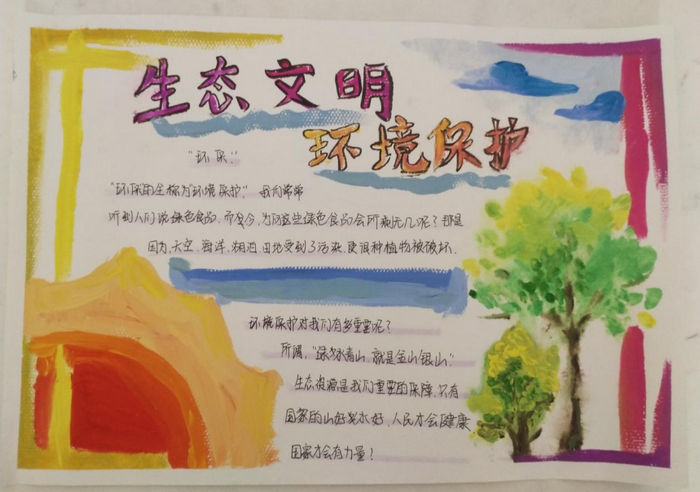 生态文明
环境保护
"环保"
"环保的全称为环境保护."我们常常
听到人们说绿色食品.而如今,为何这些绿色食品会所剩无几呢?那是
因为,大空.海洋.湖泊.田地受到了污染.使很种植物被破坏.
环境保护对我们有多重要呢?
所谓,"绿水青山,就是金山银山."
生态资源是我们重要的保障,只有
国家的山好水好,人民才会健康
国家才会有力量!